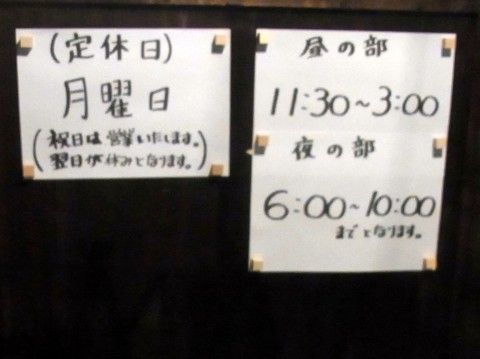 (定休日)
月曜日
(祝日は営業いたします。
翌日が休みとなります。)
昼の部
11:30~3:00
夜の部
6:00~10:00
までとなります。